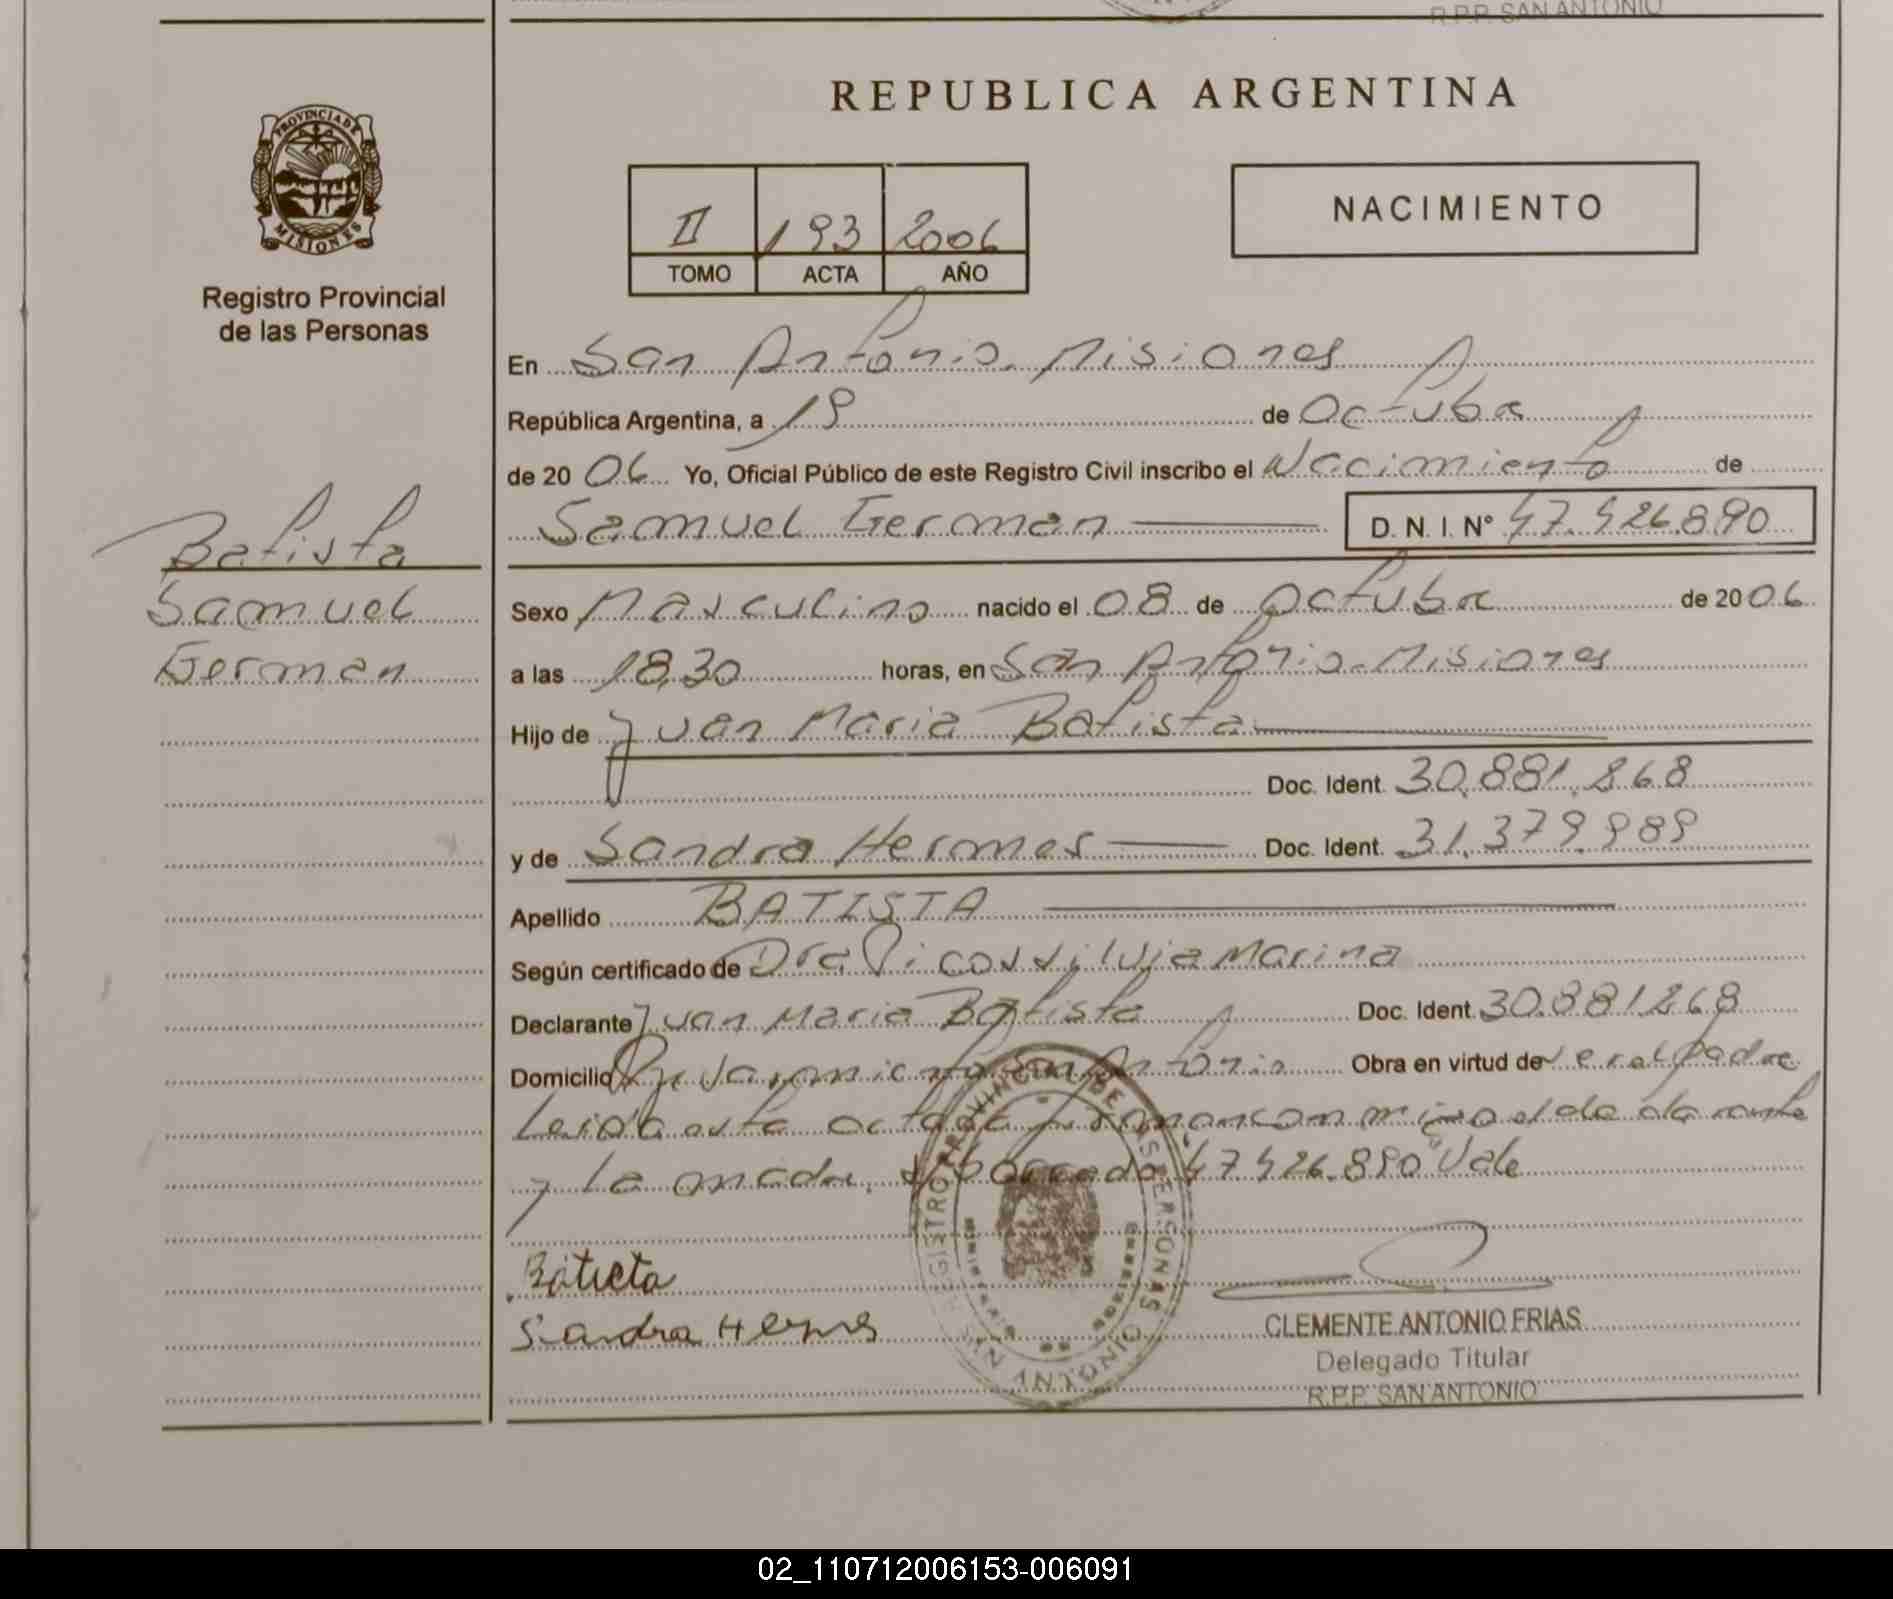 R.P.P. SAN ANTONIO
PROVINCIA DE
MISIONES
Registro Provincial
de las Personas
Batista
Samuel
German
REPUBLICA ARGENTINA
II 193 2006
TOMO ACTA AÑO
NACIMIENTO
En San Antonio. Misiones
República Argentina, a 19 de Octubre
de 20 06 Yo, Oficial Público de este Registro Civil inscribo el Nacimiento de
Samuel German D. N. I. N° 47.426.890
Sexo Masculino nacido el 08 de Octubre de 20 06
a las 18,30 horas, en San Antonio. Misiones
Hijo de Juan Maria Batista
Doc. Ident. 30.881.268
y de Sandra Hermes Doc. Ident. 31.379.989
Apellido BATISTA
Según certificado de Dra Picos Silvia Marina
Declarante Juan Maria Batista Doc. Ident. 30.881.268
Domicilio San Antonio Obra en virtud de ser el padre
Leida esta acta la firman conmigo el declarante
y La madre. 47.426.890 "Vale
Batista
Sandra Hermes
REGISTRO PROVINCIAL DE LAS PERSONAS
SAN ANTONIO
CLEMENTE ANTONIO FRIAS
Delegado Titular
R.P.P. SAN ANTONIO
02_110712006153-006091